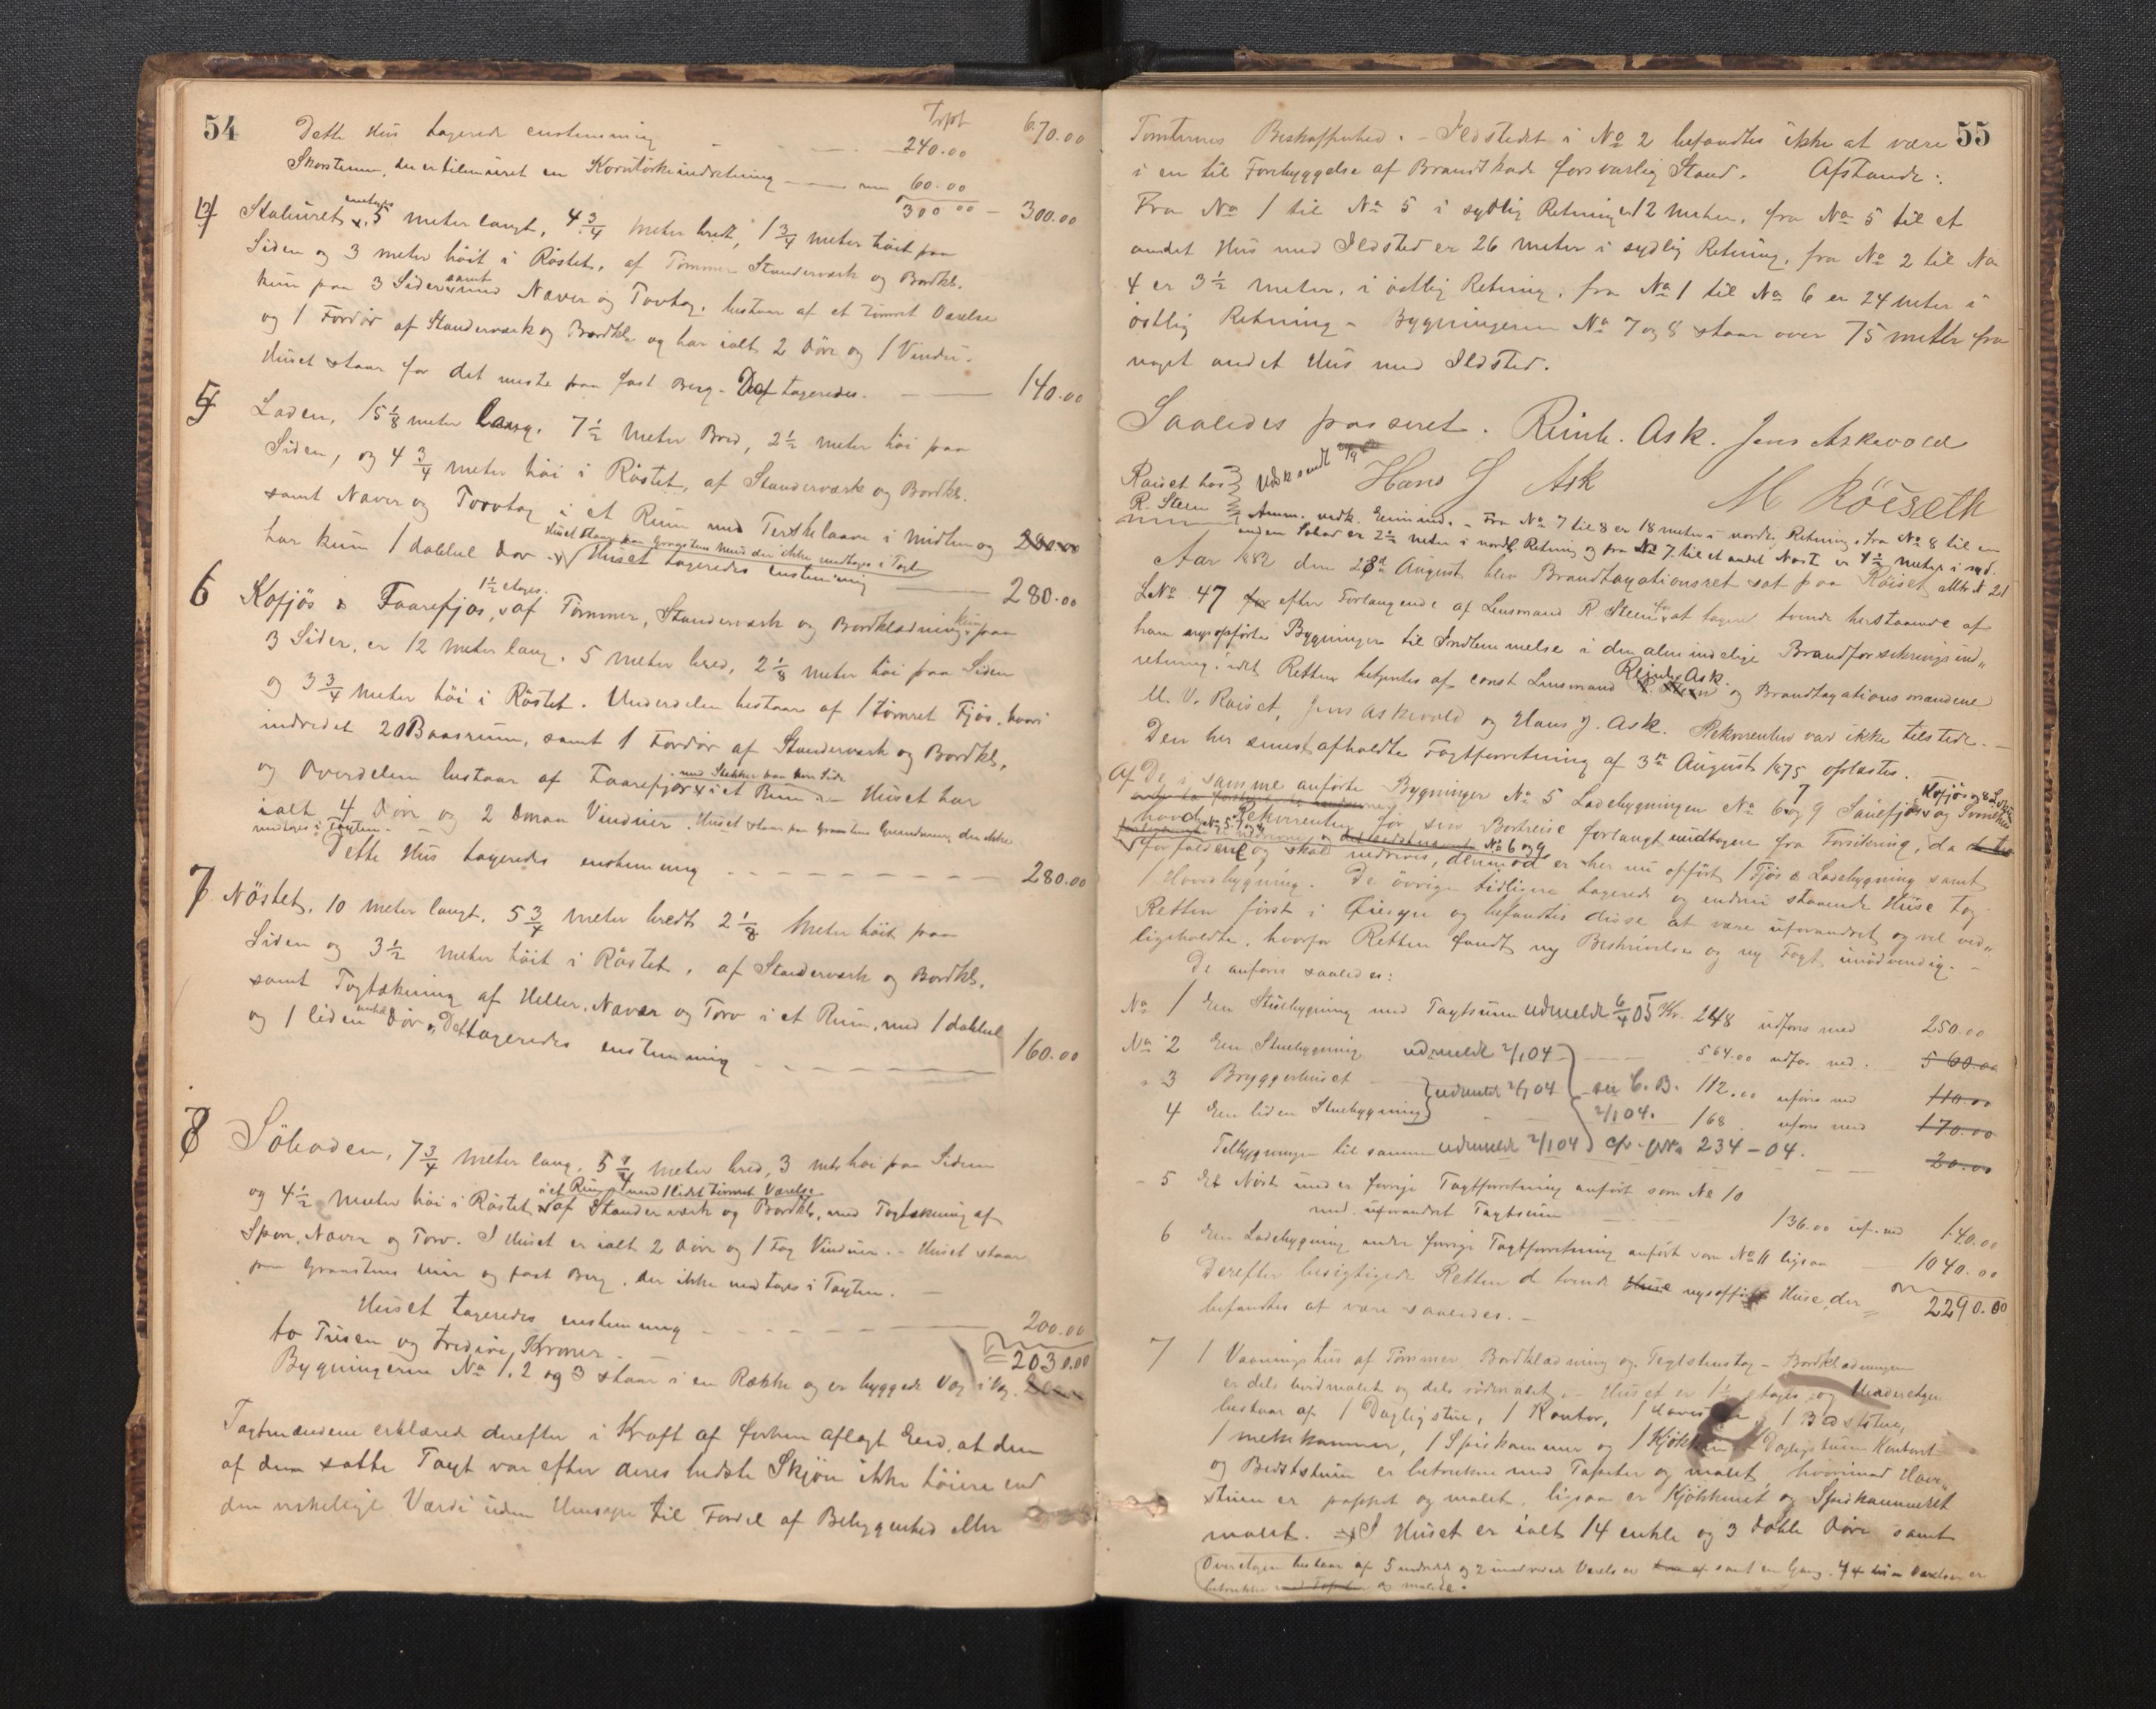 54
Trpt 670.00
Dette Hus taxeredes enstemmig — 240.00
Skorstenen, der er tilmuret en Korntörkeindretning — 60.00
300 00 — 300.00
4 Stabüret, 5 meter langt, 4 3/4 meter bredt, 1 3/4 meter höit paa
Siden og 3 meter höit i Röstet, af Tömmer Standerværk og Bordkl.
kun paa 3 Sider samt med Næver og Torvtag, bestaar af et tömret Værelse
og 1 Fordör af Standerværk og Bordkl. og har ialt 2 Döre og 1 Vindu.
Huset staar for det meste paa fast Berg. Det taxeredes. — 140.00
5 Laden, 15 1/8 meter lang, 7 1/2 meter Bred, 2 1/2 meter höi paa
Siden, og 4 3/4 meter höi i Röstet, af Standerværk og Bordkl.
samt Næver og Torvtag i et Rum med Tærskelaave i midten og
har kun 1 dobbel Dör.
Huset staar paa Graastens Mur der ikke medtages i Taxt
Huset taxeredes enstemmig — 280.00
6 Kofjös & Faarefjos, 1 1/2 etages, af Tömmer, Standerværk og Bordklædning kun paa
3 Sider, er 12 meter lang, 5 meter bred, 2 1/8 meter höi paa Siden
og 3 3/4 meter höi i Röstet. Underdelen bestaar af 1 tömret Fjös, hvori
indredet 20 Baasrum, samt 1 Fordör af Standerværk og Bordkl,
og Overdelen bestaar af Faarefjos i et Rum — Huset har
ialt 4 Döre og 2 Vinduer. Huset staar paa Graastens Grundmur, der ikke
medtages i Taxten.
Dette Hus taxeredes enstemmig — 280.00
7 Nöstet, 10 meter langt, 5 3/4 meter bredt, 2 1/8 meter höit paa
Siden og 3 1/2 meter höit i Röstet, af Standerværk og Bordkl.
samt Tagtækning af Heller, Næver og Torv i et Rum, med 1 dobbel
og 1 liden enkel Dör. Det taxeredes enstemmig — 160.00
8 Söboden, 7 3/4 meter lang, 5 1/4 meter bred, 3 met höi paa Siden
i et Rum med 1 lidet tömret Værelse
og 4 1/2 meter höi i Röstet, af Standerværk og Bordkl, med Tagtækning af
Spon, Næver og Torv. I Huset er ialt 2 Döre og 1 Fag Vinduer. — Huset staar
paa Graastens mur og fast Berg, der ikke medtages i Taxten. —
Huset taxeredes enstemmig — 200.00
to Tusen og trediive Kroner — = 2030.00
Bygningerne No 1, 2 og 3 staar i en Række og er byggede Væg i Væg.
Taxtmændene erklærede derefter i Kraft af forhen aflagt Eed, at den
af dem satte Taxt var efter deres bedste Skjön ikke höiere end
den virkelige Værdi uden Hensyn til Fordel af Beliggenhed eller
55
Tomternes Beskaffenhed. — Ildstedet i No 2 befandtes ikke at være
i en til Forebyggelse af Brandskade forsvarlig Stand. Afstande:
Fra No 1 til No 5 i sydlig Retning 12 meter, fra No 5 til et
andet Hus med Ildsted er 26 meter i sydlig Retning, fra No 2 til No
4 er 3 1/2 meter, i östlig Retning, fra No 1 til No 6 er 24 meter i
östlig Retning — Bygningerne No 7 og 8 staar over 75 meter fra
noget andet Hus med Ildsted.
Saaledes passeret. Reinh. Ask. Jens Askevold
Hans J Ask M Röiseth
Raiset hos
R. Steen
Udskrevet
Anm. vedk. Eiend. — Fra No 7 til 8 er 18 meter i nordlig Retning, fra No 8 til en
anden Söbod er 2 1/2 meter i nordl. Retning og fra No 7 til et andet Nöst er 4 1/2 meter i syd.
Aar 1882 den 28d August blev Brandtaxationsret sat paa Röiset Mtr. N 21
LNo 47 efter Forlangende af Lensmand R Steen for at taxere tvende herstaaende af
ham nyopförte Bygninger til Indlemmelse i den almindelige Brandforsikringsind-
retning, idet Retten betjentes af const Lensmand Reinh. Ask og Brandtaxationsmændene
M. V. Raiset, Jens Askevold og Hans J. Ask. Rekvirenten var ikke tilstede. —
Den her senest afholdte Taxtforretning af 3n August 1875 oplæstes.
Af De i samme anförte Bygninger No 5 Ladebygningen No 6 og 9 Sauefjös og Svinehus
havde Rekvirenten för sin Bortreise forlangt undtagen fra Forsikring, da
forfaldene og skal nedrives, derimod er her nu opfört 1 Fjös & Ladebygning samt
1 Hovedbygning. De övrige tidligere taxerede og endnu staaende Huse tog
Retten först i Öiesyn og befandtes disse at være uforandret og vel ved-
ligeholdte, hvorfor Retten fandt ny Beskrivelse og ny Taxt unödvendig. —
De anföres saaledes:
No 1 Een Stuebygning med Taxtsum udmeldt 6/4 05 Kr. 248 udföres med 250.00
No 2 Een Stuebygning udmeldt 2/1 04 — 564.00 udför. med. 560.00
" 3 Bryggerhuset — udmeldt 2/1 04 se C.B. 112.00 uföres med 110.00
4 Een liden Stuebygning — 2/1 04. 168 uföres med 170.00
Tilbygningen til samme udmeldt 2/1 04 cfr. 234-04. — 20.00
5 Et Nöst under forrige Taxtforretning anfört som No 10
med uforandret Taxtsum — 136.00 uf. med 140.00
6 Een Ladebygning under forrige Taxtforretning anfört som No 11 ligesaa — 1040.00
Derefter besigtigede Retten de tvende Huse nyopförte Huse, der = 2290.00
befandtes at være saaledes. —
7 1 Vaaningshus af Tömmer, Bordklædning og Teglstenstag — Bordklædningen
er dels hvidmalet og dels rödmalet — Huset er 1 1/2 etages, og Underetagen
bestaar af 1 Dagligstue, 1 Kontor, 1 1 Bedststue,
1 melkekammer, 1 Spiskammer og 1 Kjökken. Dagligstuen Kontoret
og Bedststuen er betrukne med Tapeter og malet, hvorimod Have-
stuen er pappet og malet, ligesaa er Kjökkenet og Spiskammeret
malet. — I Huset er ialt 14 enkle og 3 doble Döre samt
Overetagen bestaar af 5 indredede og 2 uindredede Værelser samt en Gang. 4 Værelser er
betrukne og malede.